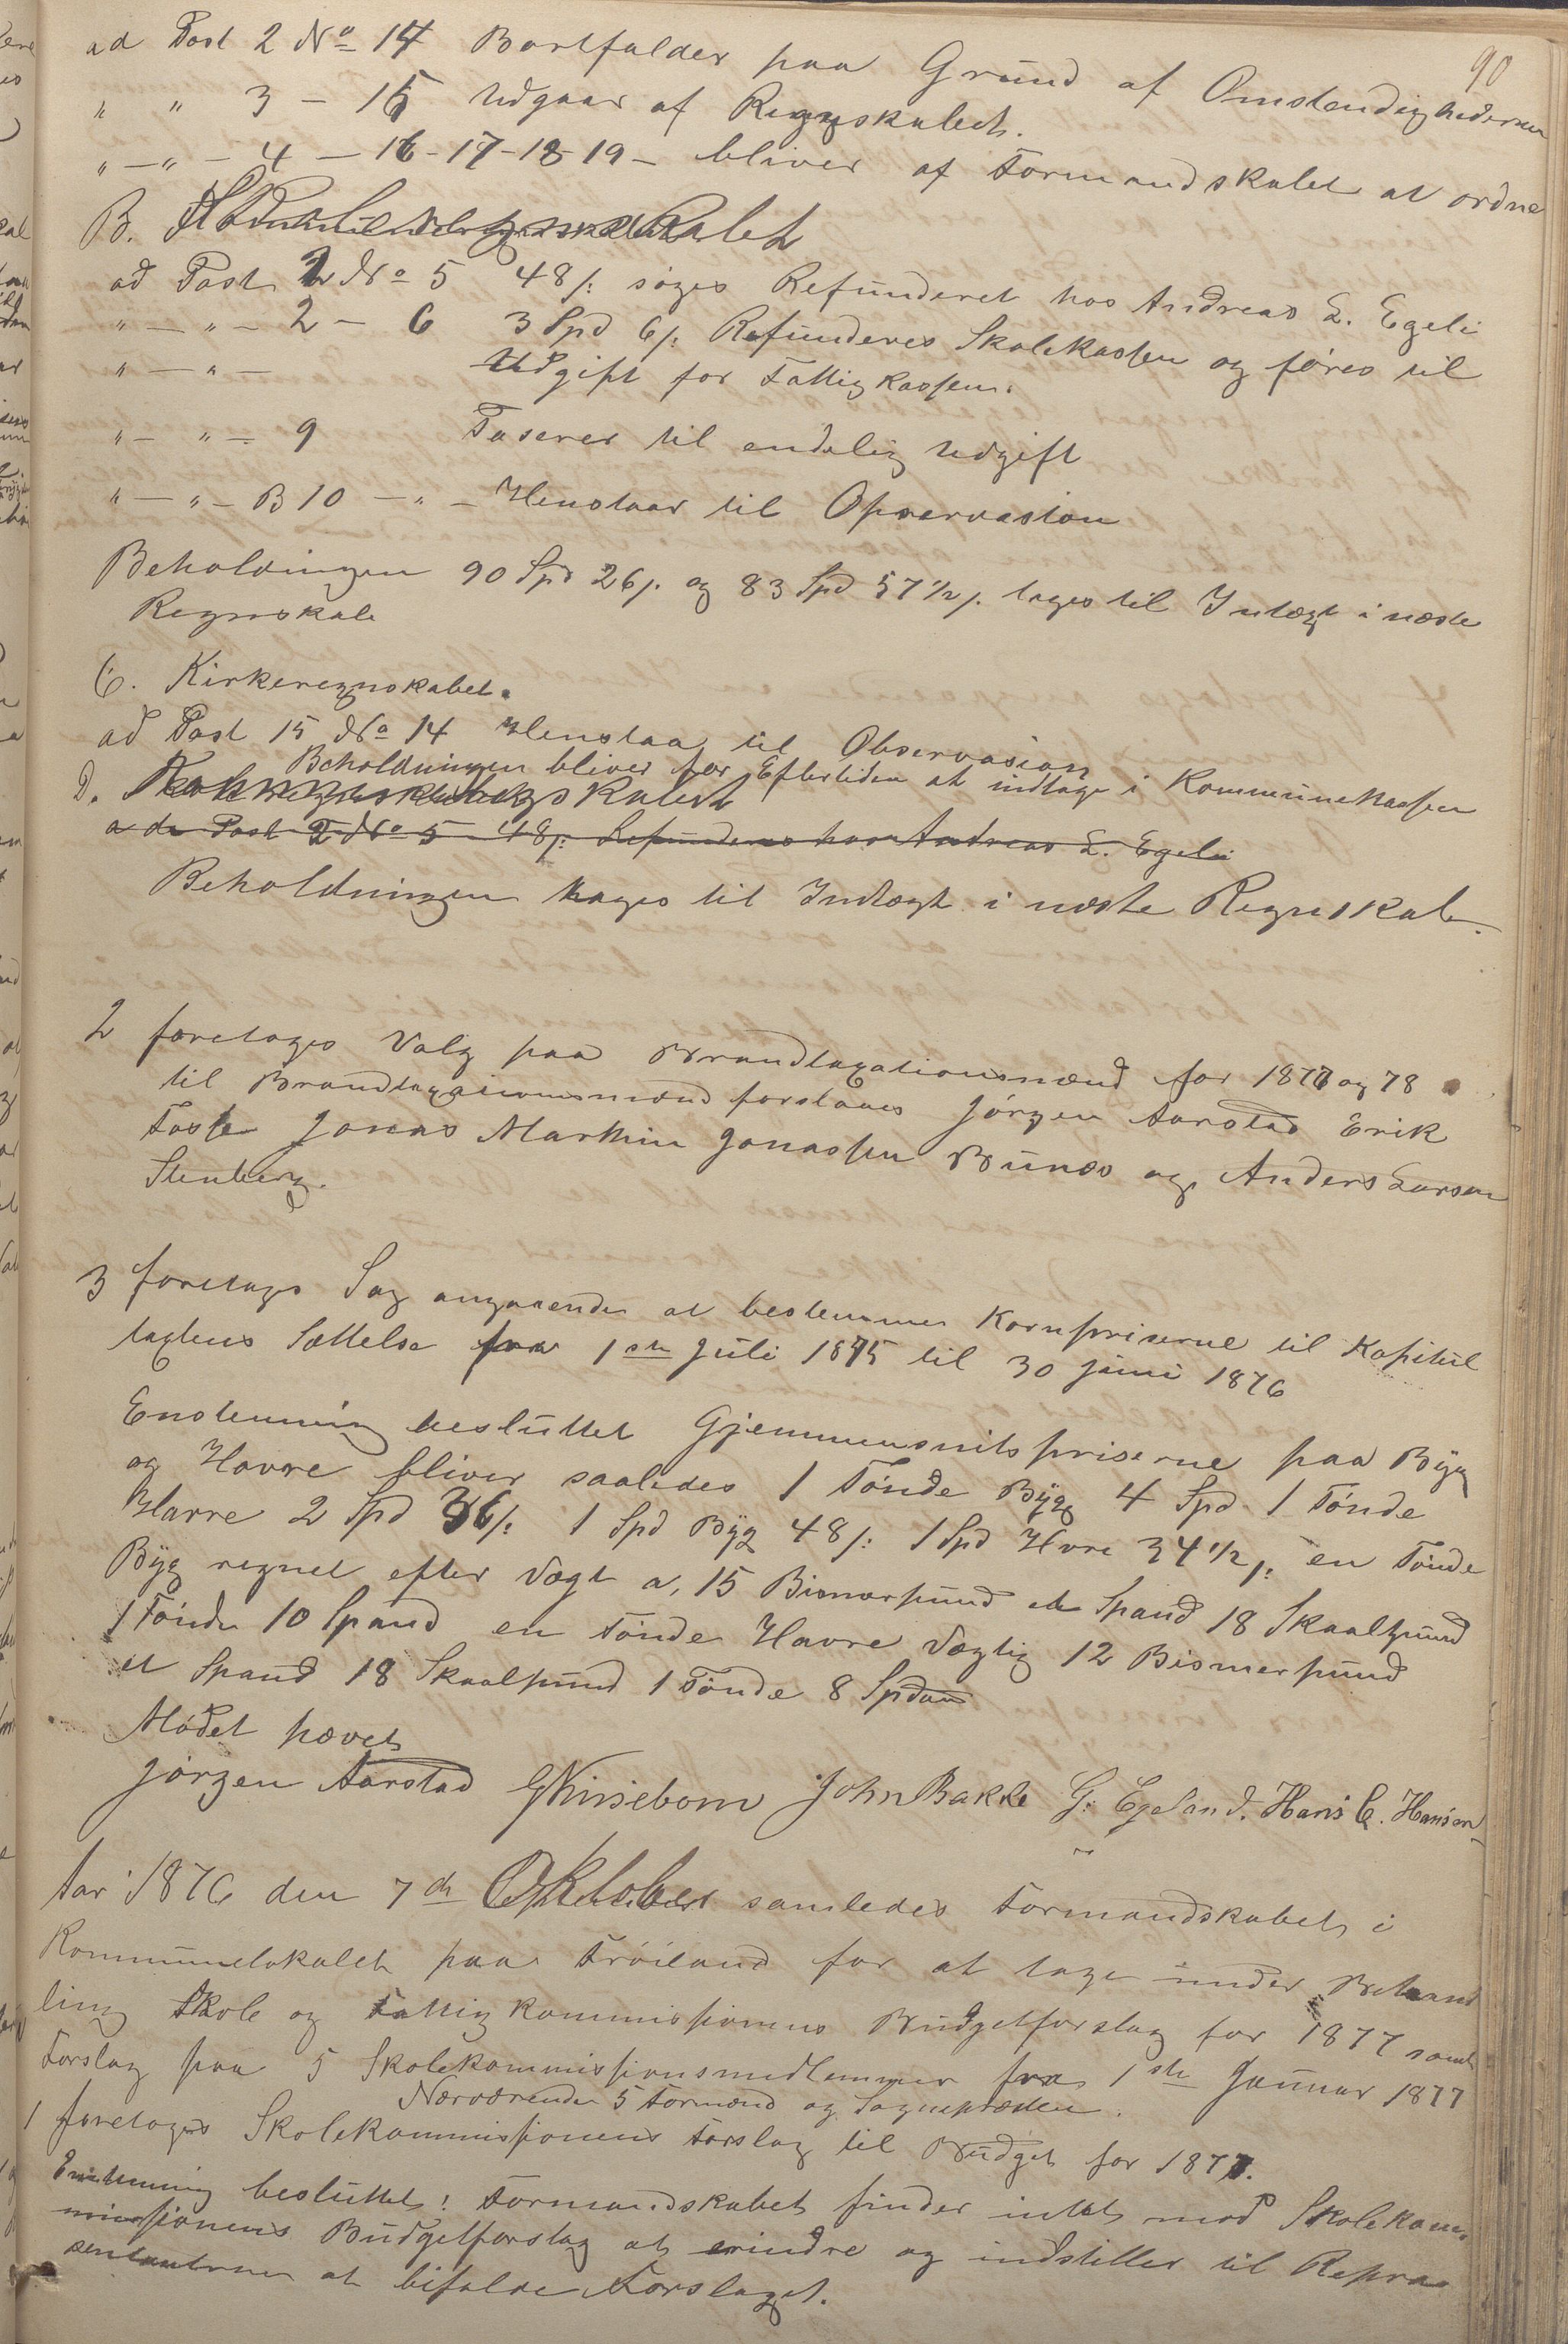 90
ad Post 2 No 14 Bortfalder paa Grund af Omstendighederne
" " 3 - 15 Udgaar af Regnskabet.
" - " - 4 - 16-17-18-19- bliver af Formandskabet at ordne
B.
ad Post 2 No 5 48 /: søges Refunderet hos Andreas L. Egeli
" - " - 2 - 6 3 Spd 6 /: Refunderes Skolekassen og føres til
" - " - Udgift for Fattigkassen.
" - " - 9 Faseres til endelig Udgift
" - " - B 10 - " - Henstaar til Opservasion
Beholdningen 90 Spd 26 /. og 83 Spd 57 1/2 /. tages til Indtægt i næste
Regnskab
C. Kirkeregnskabet.
ad Post 15 No 14 Henstaa til Observasion
Beholdningen bliver for Eftertiden at indtage i Kommunekassen
D.
ad Post 2 No 5 48 /: Refunderes hos Andreas L. Egeli
Beholdningen tages til Indtægt i næste Regnskab.
2 foretages Valg paa Brandtaxationsmænd for 1877 og 78
til Brandtaxationsmænd forslaaes Jørgen Aarstad Erik
Tosse Jonas Marthin Jonassen Bunæs og Anders Larsen
Stenberg.
3 foretages Sag angaaende at bestemme Kornpriserne til Kapitul
taxtens Sættelse fra 1ste Juli 1875 til 30 juni 1876
Enstemmig besluttet Gjennemsnitspriserne paa Byg
og Havre bliver saaledes 1 Tønde Byg 4 Spd 1 Tønde
Havre 2 Spd 36 /: 1 Spd Byg 48 /: 1 Spd Hvre 34 1/2 /: en Tønde
Byg regnet efter Vægt a, 15 Bismerpund et Spand 18 Skaalpund
1 Tønde 10 Spand en Tønde Havre Vægtig 12 Bismerpund
et Spand 18 Skaalpund 1 Tønde 8 Spdan
Mødet hævet
Jørgen Aarstad John Bakke G. Egeland. Hans C. Hansen
Aar 1876 den 7de Oktober samledes Formandskabet i
Kommunelokalet paa Frøiland for at tage under Behand
ling Skole og Fattigkommissionens Budgetforslag for 1877 samt
Forslag paa 5 Skolekommissionsmedlemmer fra 1ste Januar 1877
Nærværende 5 Formænd og Sognepræsten.
1 foretages Skolekommissionens Forslag til Budget for 1877.
Enstemmig besluttet: Formandskabet finder intet mod Skolekom-
missionens Budgetforslag at erindre og indstiller til Repræ
sentanterne at bifalde Forslaget.